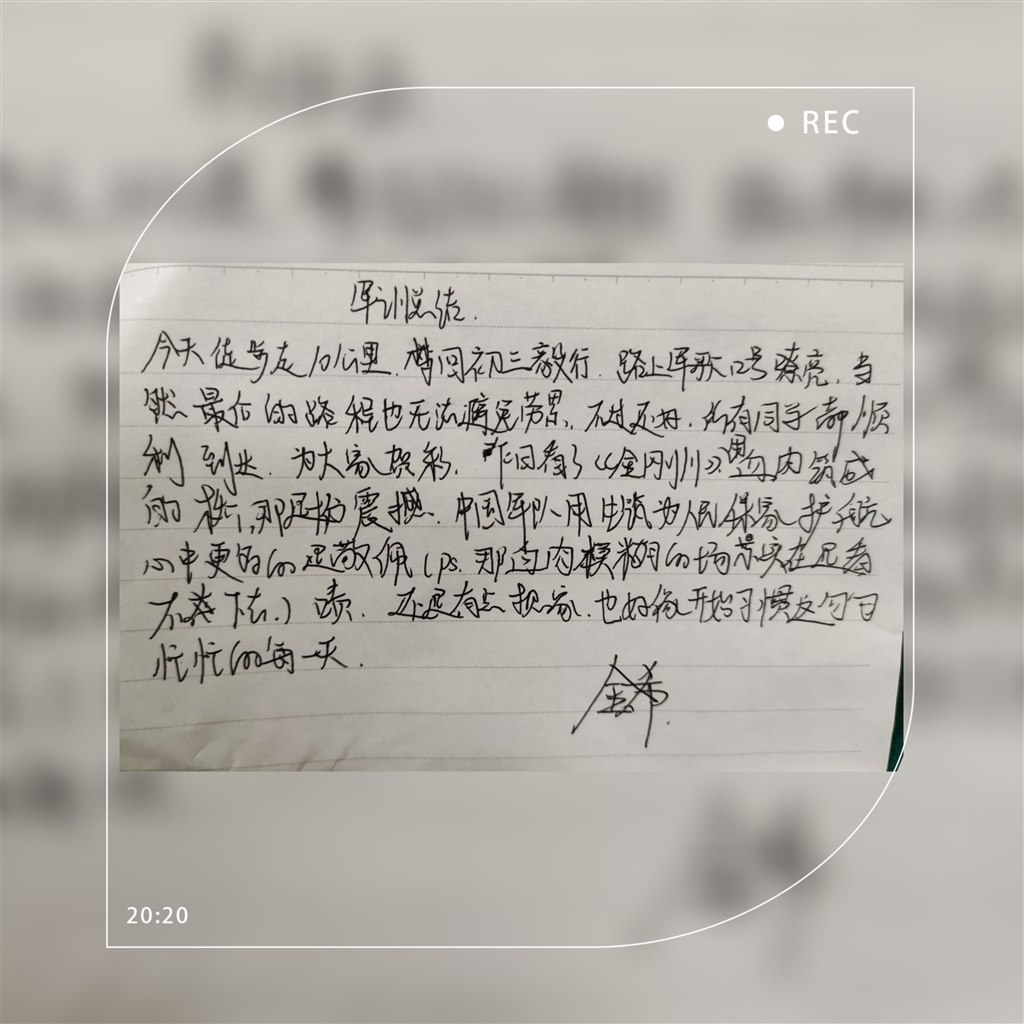 REC
军训总结.
今天徒步走10公里.梦回初三毅行.路上军歌口号嘹亮.当
然最后的路程也无法避免劳累.不过还好.所有同学都顺
利到达.为大家贺彩.昨日看了《金刚川》.用血肉筑成
的桥,那是抽震撼.中国军队用生命为人民保家护航
心中更多的是敬佩(ps.那血肉模糊的场景实在是看
不太下去.)啧.还是有点想家.也好像开始习惯这匀日
忙忙的每一天.
金希
20:20